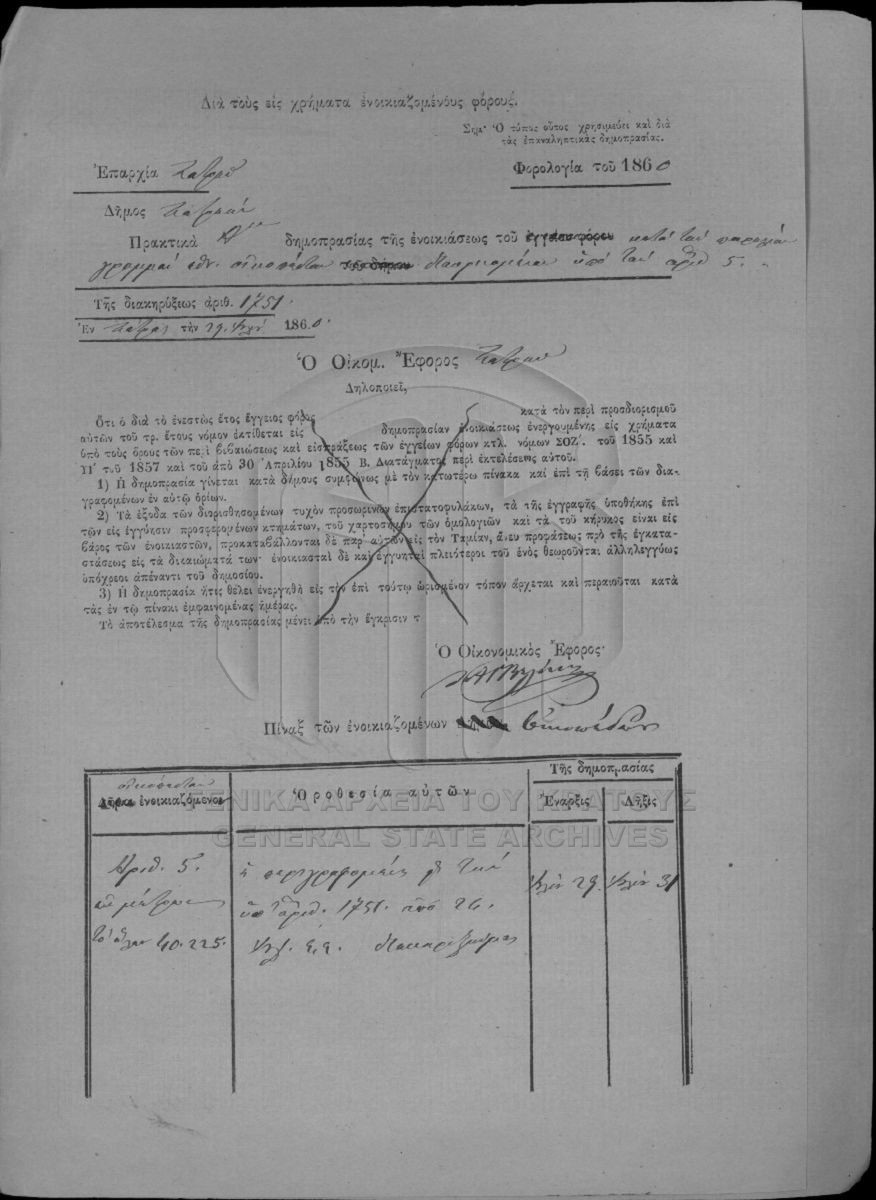 Διὰ τοὺς εἰς χρήματα ἐνοικιαζομένους φόρους.
Σημ· Ὁ τύπος οὗτος χρησιμεύει καὶ διὰ
τὰς ἐπαναληπτικὰς δημοπρασίας.
Ἐπαρχία
Φορολογία τοῦ 1860
Δῆμος
Πρακτικὰ δημοπρασίας τῆς ἐνοικιάσεως τοῦ ἐγγείου φόρου κατὰ τὴν
ὑπὸ τὸν ἀριθ 5.
Τῆς διακηρύξεως ἀριθ. 1751.
Ἐν τὴν 29 1860.
Ὁ Οἰκομ. Ἔφορος
Δηλοποιεῖ,
Ὅτι ὁ διὰ τὸ ἐνεστὼς ἔτος ἔγγειος φόρος κατὰ τὸν περὶ προσδιορισμοῦ
αὐτῶν τοῦ τρ. ἔτους νόμον ἐκτίθεται εἰς δημοπρασίαν ἐνοικιάσεως ἐνεργουμένης εἰς χρήματα
ὑπὸ τοὺς ὅρους τῶν περὶ βεβαιώσεως καὶ εἰσπράξεως τῶν ἐγγείων φόρων κτλ. νόμων ΣΟΖ΄. τοῦ 1855 καὶ
ΥΙ΄ τοῦ 1857 καὶ τοῦ ἀπὸ 30 Ἀπριλίου 1855 Β. Διατάγματος περὶ ἐκτελέσεως αὐτοῦ.
1) Ἡ δημοπρασία γίνεται κατὰ δήμους συμφώνως μὲ τὸν κατωτέρω πίνακα καὶ ἐπὶ τῇ βάσει τῶν δια-
γραφομένων ἐν αὐτῷ ὁρίων.
2) Τὰ ἔξοδα τῶν διορισθησομένων τυχὸν προσωρινῶν ἐπιστατοφυλάκων, τὰ τῆς ἐγγραφῆς ὑποθήκης ἐπὶ
τῶν εἰς ἐγγύησιν προσφερομένων κτημάτων, τοῦ χαρτοσήμου τῶν ὁμολογιῶν καὶ τὰ τοῦ κήρυκος εἶναι εἰς
βάρος τῶν ἐνοικιαστῶν, προκαταβάλλονται δὲ παρ' αὐτῶν εἰς τὸν Ταμίαν, ἄνευ προφάσεως πρὸ τῆς ἐγκατα-
στάσεως εἰς τὰ δικαιώματά των· ἐνοικιασταὶ δὲ καὶ ἐγγυηταὶ πλειότεροι τοῦ ἑνὸς θεωροῦνται ἀλληλεγγύως
ὑπόχρεοι ἀπέναντι τοῦ δημοσίου.
3) Ἡ δημοπρασία ἥτις θέλει ἐνεργηθῆ εἰς τὸν ἐπὶ τούτῳ ὡρισμένον τόπον ἄρχεται καὶ περαιοῦται κατὰ
τὰς ἐν τῷ πίνακι ἐμφαινομένας ἡμέρας.
Τὸ ἀποτέλεσμα τῆς δημοπρασίας μένει ὑπὸ τὴν ἔγκρισιν τ
Ὁ Οἰκονομικὸς Ἔφορος·
Πίναξ τῶν ἐνοικιαζομένων οἰκοπέδων
οἰκόπεδον
ἐνοικιαζόμενοι
Ὁροθεσία αὐτῶν
Τῆς δημοπρασίας
Ἔναρξις
Λῆξις
ΓΕΝΙΚΑ ΑΡΧΕΙΑ ΤΟΥ ΚΡΑΤΟΥΣ
GENERAL STATE ARCHIVES
Ἀριθ. 5.
40.225.
ὑπ' ἀριθ. 1751 ἀπὸ 26.
29.
31